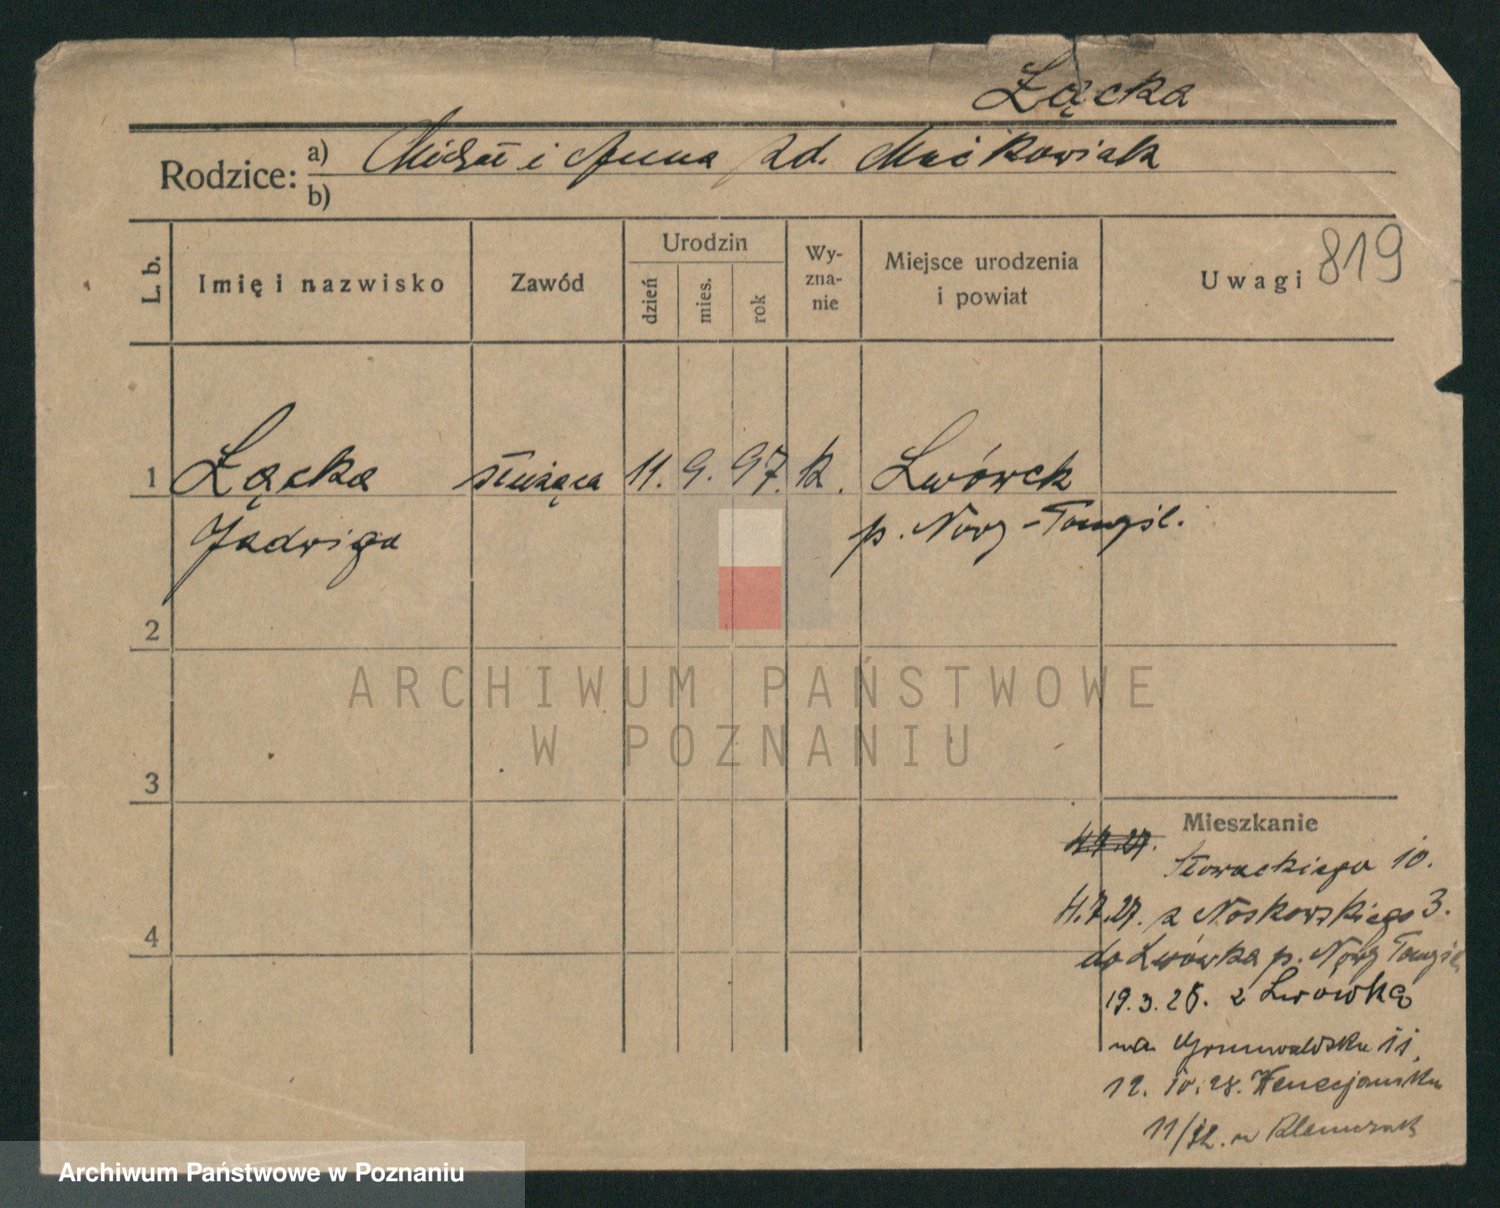 Łącka
Rodzice: a) Michał i Anna zd. Maćkowiak
b)
L. b.
Imię i nazwisko
Zawód
Urodzin
dzień
mies.
rok
Wy-
zna-
nie
Miejsce urodzenia
i powiat
Uwagi 819
1 Łącka służąca 11. 9. 97. k. Lwówek
Jadwiga p. Nowy-Tomyśl.
2
ARCHIWUM PAŃSTWOWE
W POZNANIU
3
Mieszkanie
4.7.27.
Słowackiego 10.
4.7.27. z Noskowskiego 3.
4
do Lwówka p. Nowy Tomyśl
19.3.28. z Lwówka
na Grunwaldzka 11,
12. 10. 28. Wenecjańska
11/12. u
Archiwum Państwowe w Poznaniu